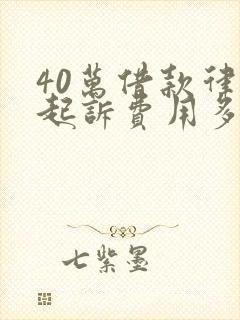 40萬借款律
起訴費用多
七紫墨